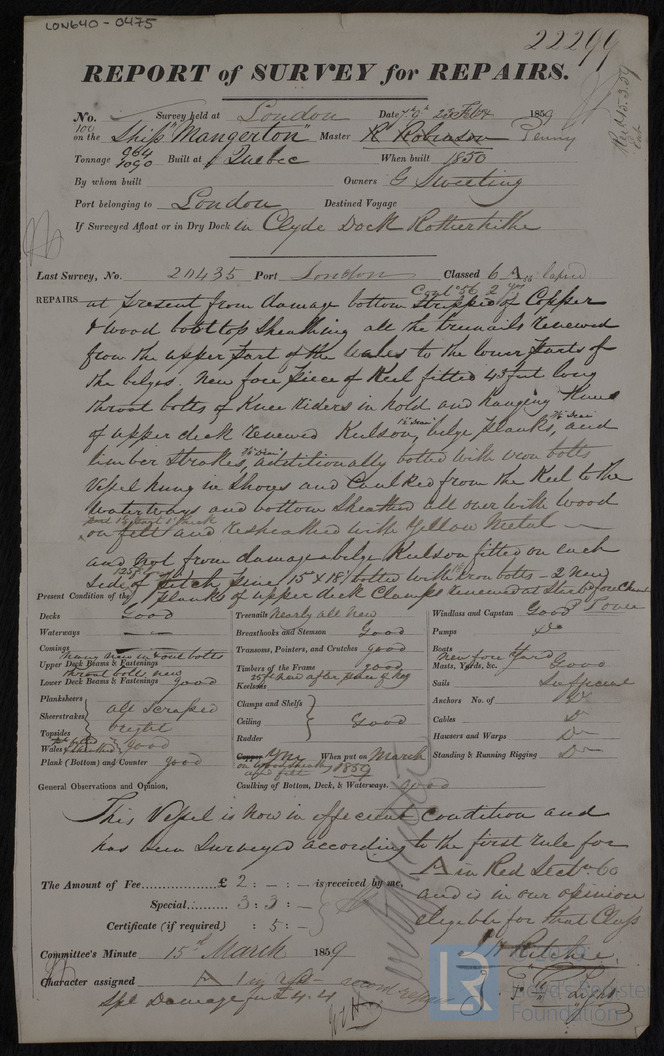 LON640-0475
22299
REPORT of SURVEY for REPAIRS.
No. Survey held at London Date 23 Feby 1859
on the Ship "Mangerton" Master R Robinson Penny
Tonnage 964 1090 Built at Quebec When built 1850
By whom built Owners G Sweeting
Port belonging to London Destined Voyage
If Surveyed Afloat or in Dry Dock in Clyde Dock Rotherhithe
Last Survey, No. 20435 Port London Classed 6 A lapsed
Contd 56. 2 yrs
REPAIRS at present from damage bottom stripped of Copper
& wood boottop sheathing all the treenails renewed
from the upper part of the Wales to the lower parts of
the bilges. New fore piece of Keel fitted 43 feet long
throat bolts of Knee Riders in hold and hanging Knees
of upper deck renewed Keelson, bilge planks, and
limber strakes, additionally bolted with iron bolts
Vessel hung in Shores and Caulked from the Keel to the
Waterways and bottom sheathed all over with wood
on felt and resheathed with Yellow Metal
and not from damage bilge Keelson fitted on each
side of Pitch pine 15 x 18 bolted with iron bolts - 2 New
planks of upper deck Clamps renewed at Starbd fore Chains
Present Condition of the
Decks Good
Waterways
Comings
many new in & out bolts
Upper Deck Beams & Fastenings
throat bolts new
Lower Deck Beams & Fastenings good
Planksheers
Sheerstrakes
Topsides
all scraped
bright
Wales good
Plank (Bottom) and Counter good
Treenails nearly all new
Breasthooks and Stemson Good
Transoms, Pointers, and Crutches good
Timbers of the Frame good
Keelsons
Clamps and Shelfs
Ceiling Good
Rudder
Copper YM When put on March
on wood sheathg 1859
and felt
Caulking of Bottom, Deck, & Waterways. good
Windlass and Capstan Good
Pumps Do
Boats
New fore Yard
Masts, Yards, &c. Good
Sails Sufficient
Anchors No. of Do
Cables Do
Hausers and Warps Do
Standing & Running Rigging Do
General Observations and Opinion,
This Vessel is now in efficient Condition and
has been Surveyed according to the first rule for
A in Red Sect 60
and is in our opinion
eligible for that Class
The Amount of Fee £ 2 : - : - is received by me,
Special 3 : 3 : -
Certificate (if required) : 5 : -
Committee's Minute 15th March 1859
Character assigned A 1 in red
Spl Damage fee £4.4
J H Ritchie
Light
LR
Lloyd's Register
Foundation